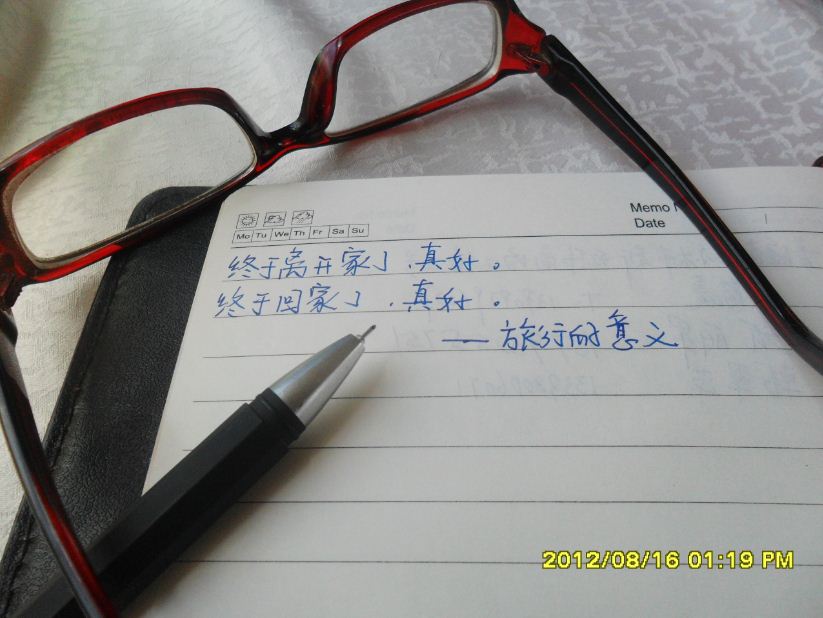 Memo
Date
Mo Tu We Th Fr Sa Su
终于离开家了,真好。
终于回家了,真好。
——旅行的意义
2012/08/16 01:19 PM